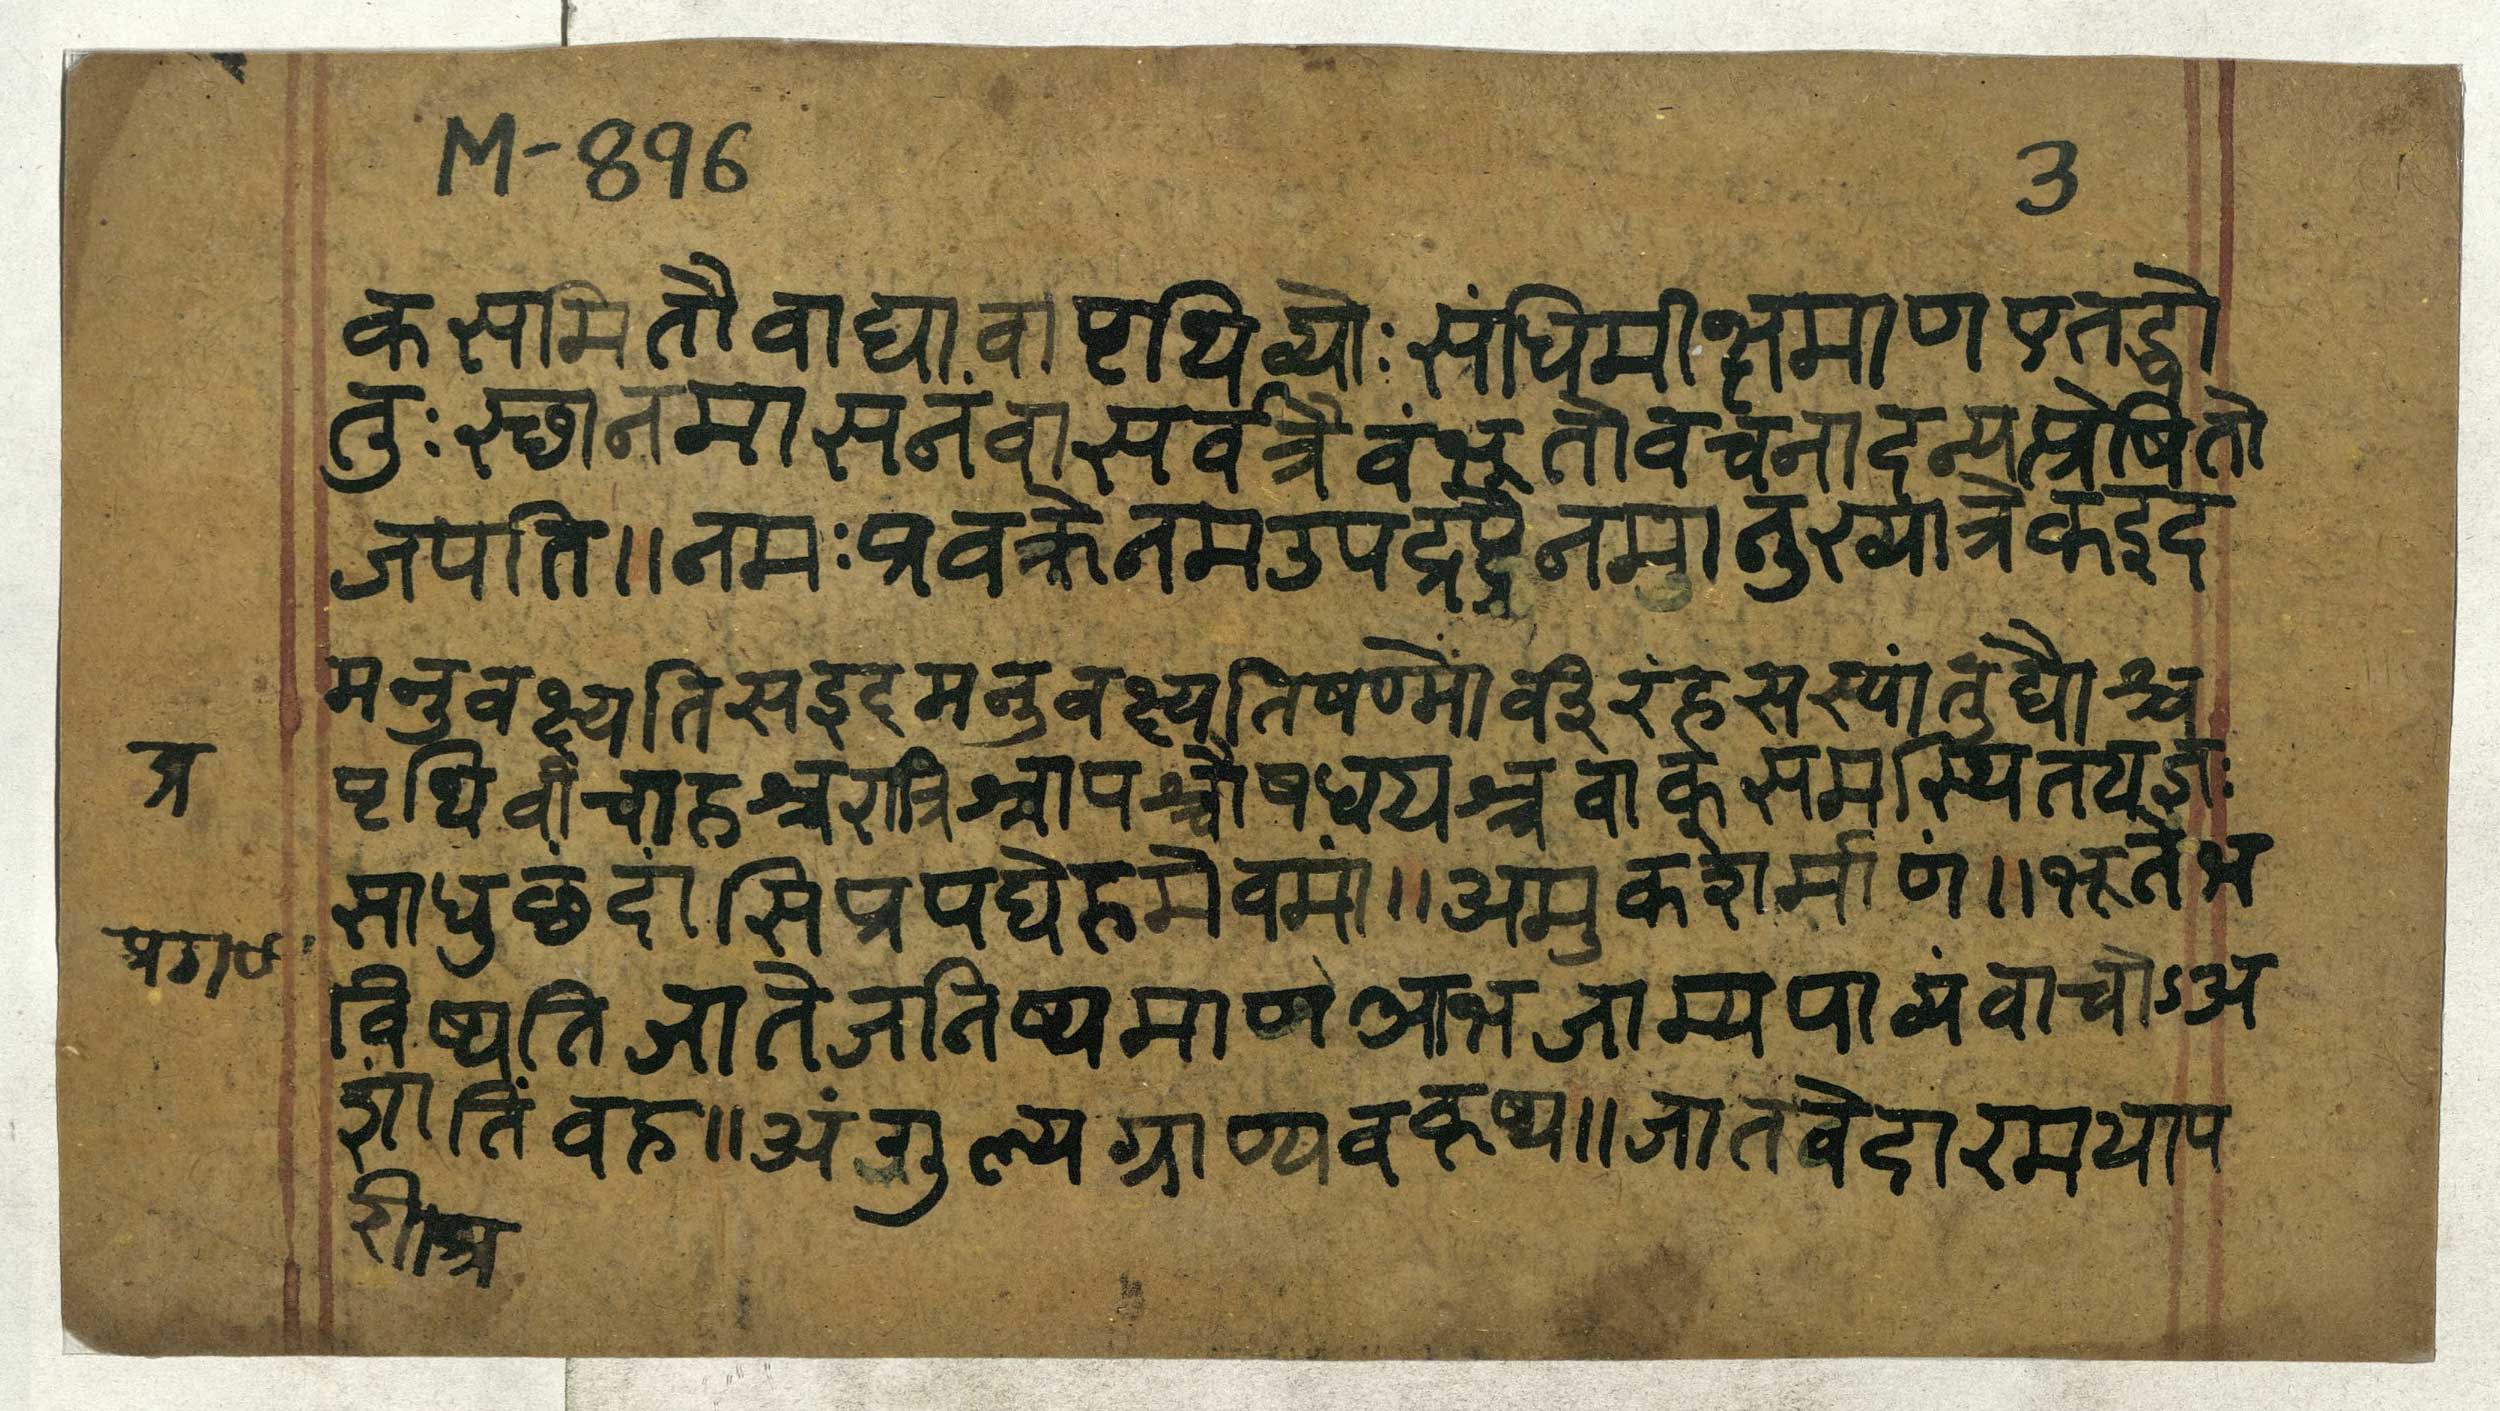 M-896 3
कसमितौवाद्यावापृथिव्योः संधिमीक्षमाणएतद्धो
तुः स्छानमासनंवासर्वत्रैवंभूतोवचनादन्यत्प्रेषितो
जपति॥नमःप्रवक्त्रेनमउपद्रष्ट्रेनमोनुख्यात्रेकइद
मनुवक्ष्यतिसइदमनुवक्ष्यतिषण्मोर्वीरंहसस्पांतुद्यौश्च
पृथिवीचाहश्चरात्रिश्चापश्चौषधयश्चवाक्समस्थितयज्ञः
साधुछंदांसिप्रपद्येहमेवमां॥अमुकशर्माणं॥भूतेभ
विष्यतिजातेजनिष्यमाणआभजाम्यपाव्यंवाचोऽअ
शांतिंवह॥अंगुल्यग्राण्यवकृष्य॥जातवेदोरमयाप
शीन्म
त्र